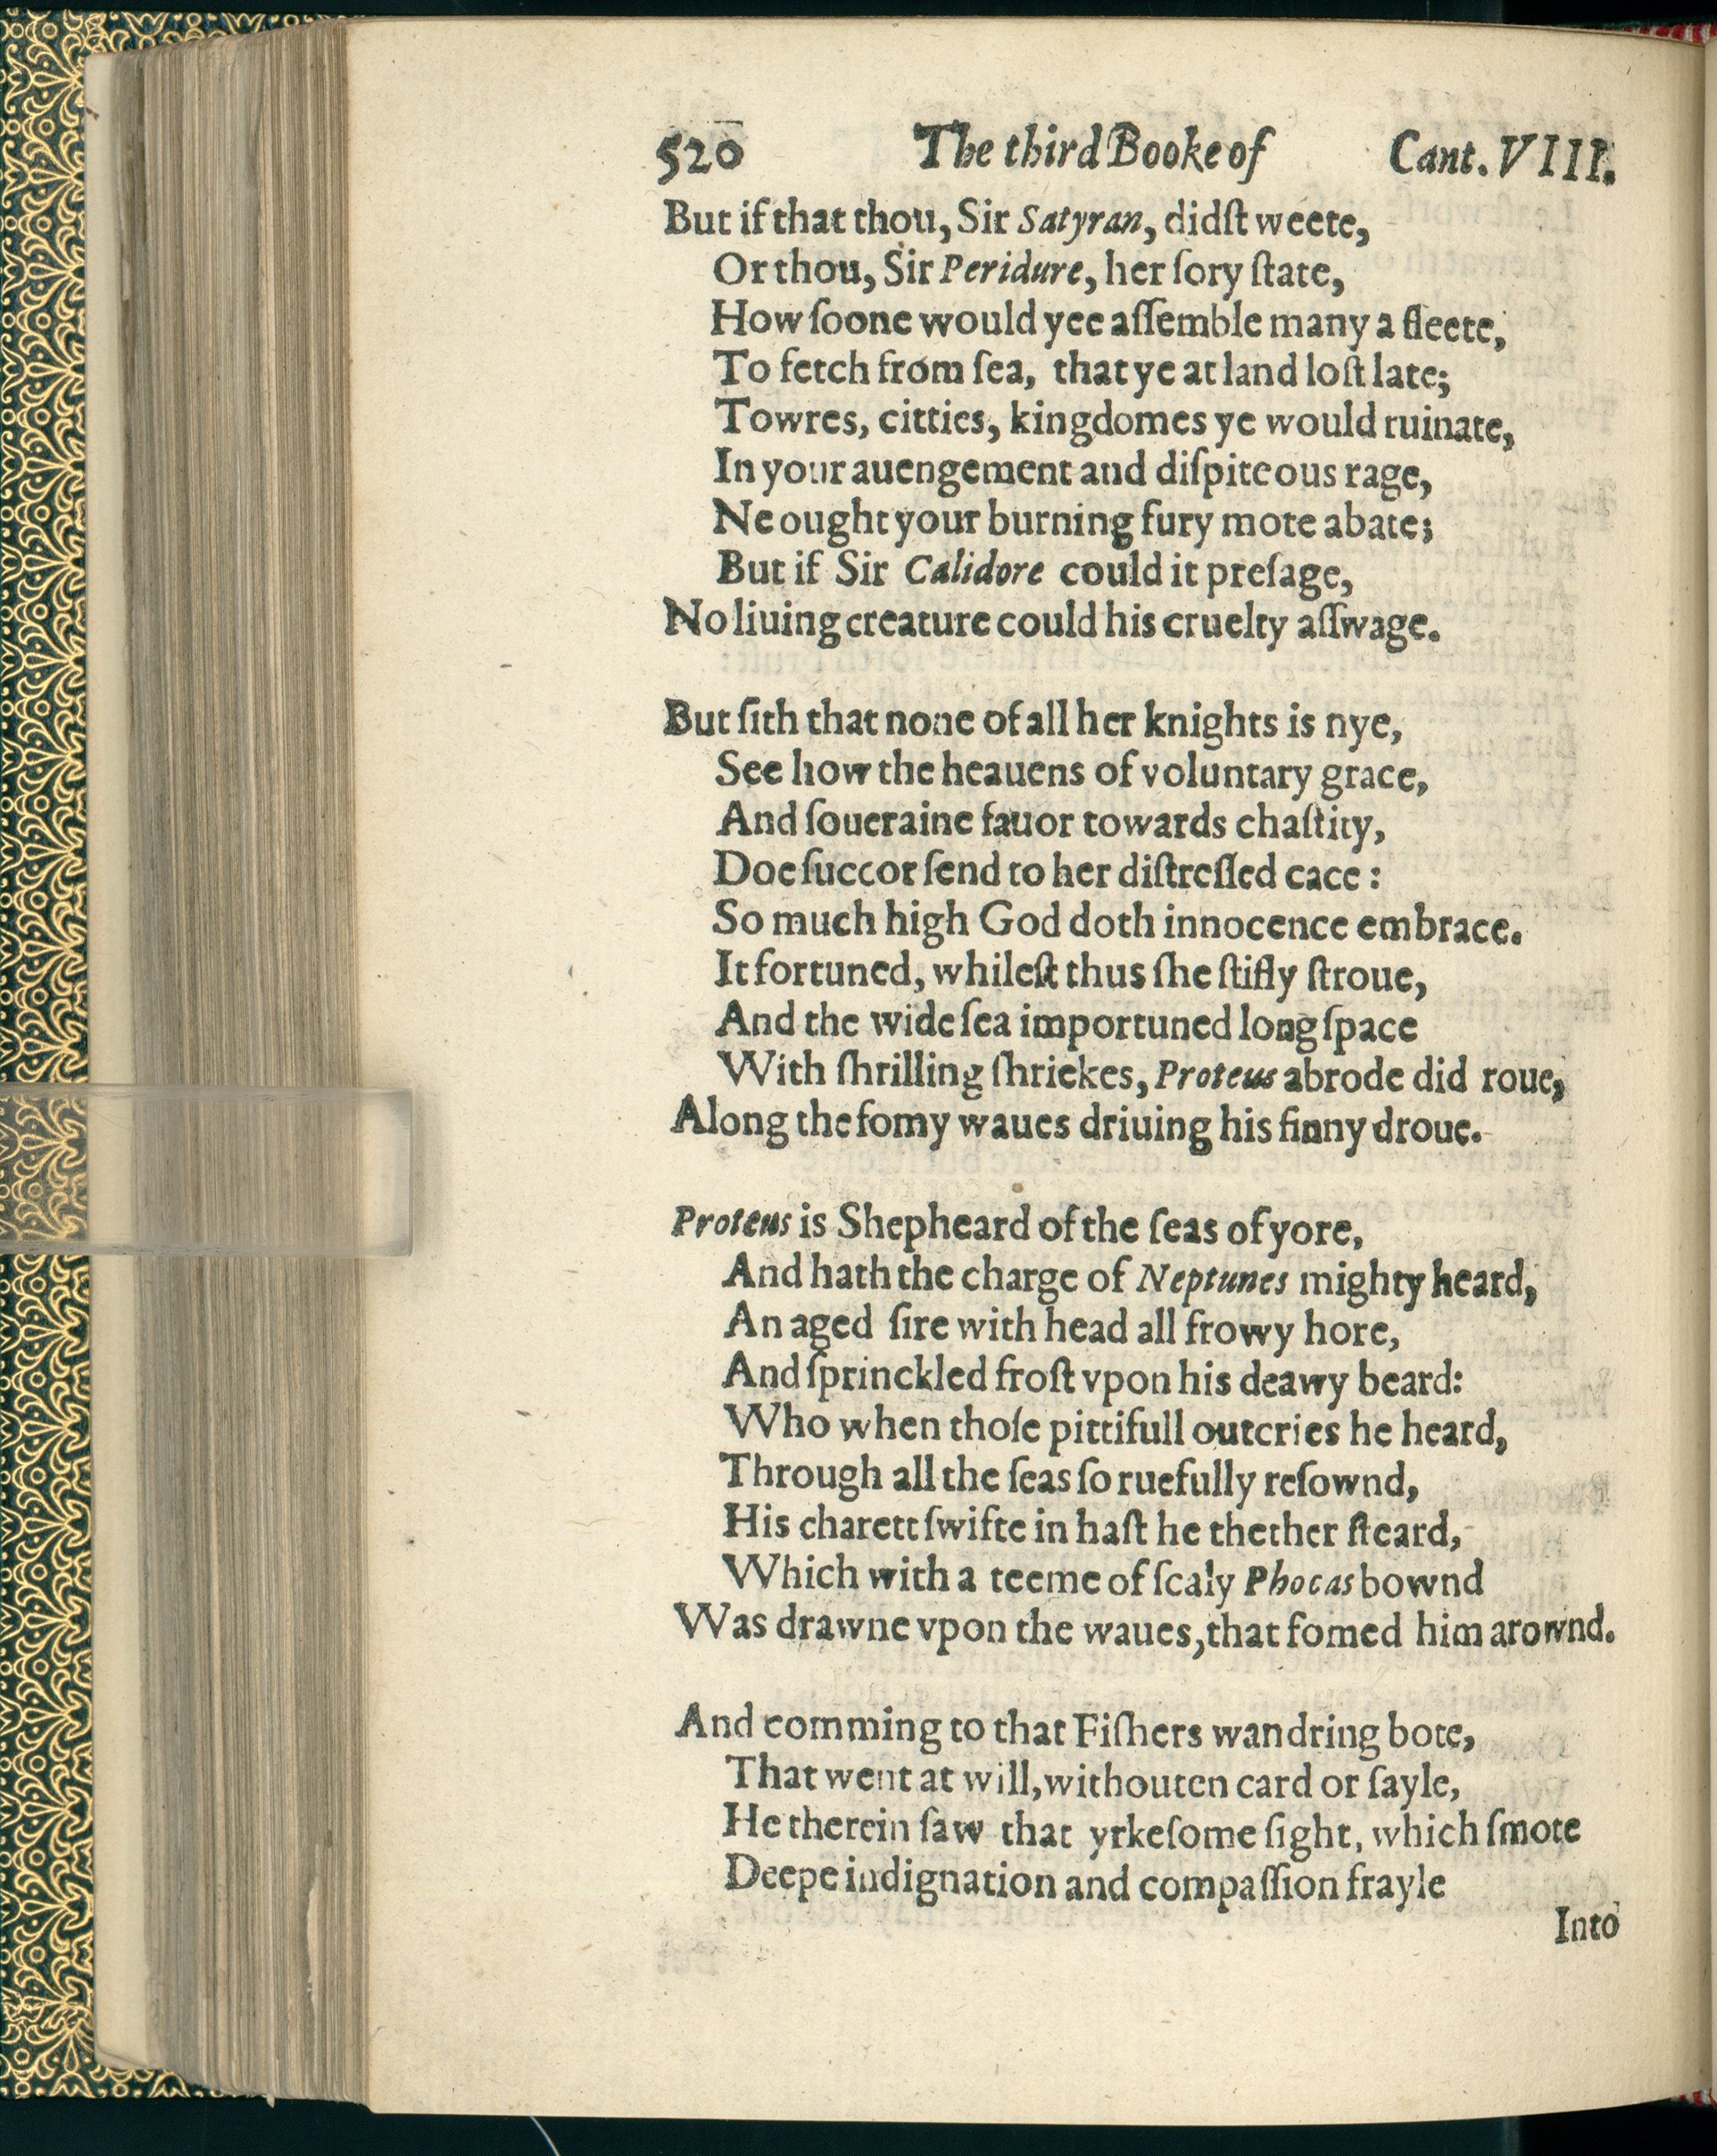 520 The third Booke of Cant. VIII.
But if that thou, Sir Satyran, didſt weete,
Or thou, Sir Peridure, her ſory ſtate,
How ſoone would yee aſſemble many a fleete,
To fetch from ſea, that ye at land loſt late;
Towres, citties, kingdomes ye would ruinate,
In your auengement and diſpiteous rage,
Ne ought your burning fury mote abate;
But if Sir Calidore could it preſage,
No liuing creature could his cruelty aſſwage.
But ſith that none of all her knights is nye,
See how the heauens of voluntary grace,
And ſoueraine fauor towards chaſtity,
Doe ſuccor ſend to her diſtreſſed cace:
So much high God doth innocence embrace.
It fortuned, whileſt thus ſhe ſtifly ſtroue,
And the wide ſea importuned long ſpace
With ſhrilling ſhriekes, Proteus abrode did roue,
Along the fomy waues driuing his finny droue.
Proteus is Shepheard of the ſeas of yore,
And hath the charge of Neptunes mighty heard,
An aged ſire with head all frowy hore,
And ſprinckled froſt vpon his deawy beard:
Who when thoſe pittifull outcries he heard,
Through all the ſeas ſo ruefully reſownd,
His charett ſwifte in haſt he thether ſteard,
Which with a teeme of ſcaly Phocas bownd
Was drawne vpon the waues, that fomed him arownd.
And comming to that Fiſhers wandring bote,
That went at will, withouten card or ſayle,
He therein ſaw that yrkeſome ſight, which ſmote
Deepe indignation and compaſſion frayle
Into